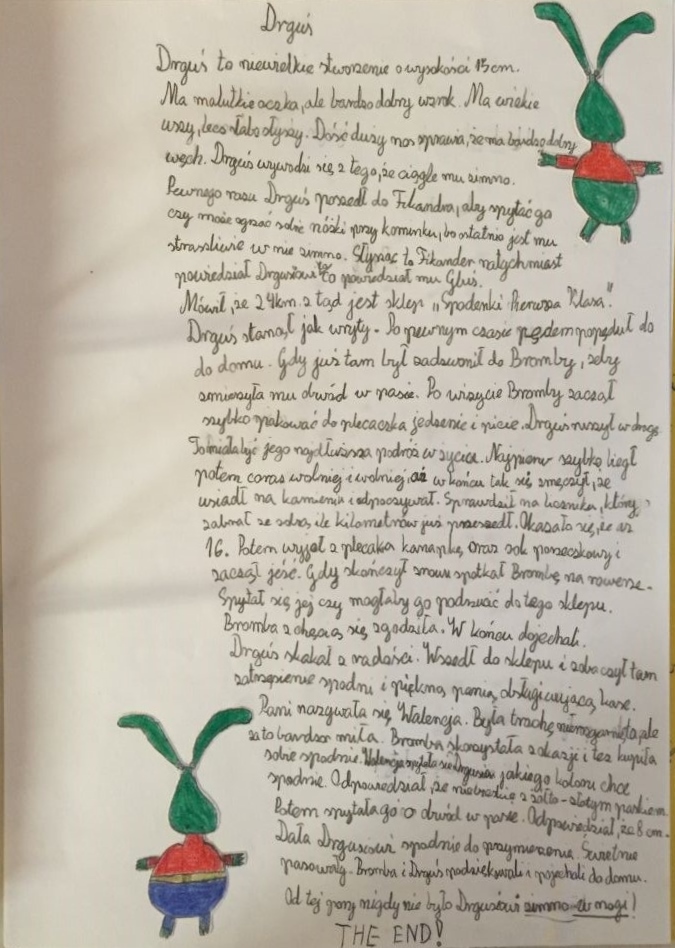 Drguś
Drguś to niewielkie stworzenie o wysokości 15cm.
Ma malutkie oczka, ale bardzo dobry wzrok. Ma wielkie
uszy, lecz słabo słyszy. Dość duży nos sprawia, że ma bardzo dobry
węch. Drguś wywodzi się z tego, że ciągle mu zimno.
Pewnego razu Drguś poszedł do Fikandra, aby spytać go
czy może ogrzać sobie nóżki przy kominku, bo ostatnio jest mu
straszliwie w nie zimno. Słysząc to Fikander natychmiast
powiedział Drgusiowi to co powiedział mu Gluś.
Mówił, że 24km z tąd jest sklep „Spodenki Pierwsza Klasa".
Drguś stanął jak wryty. Po pewnym czasie pędem popędził do
do domu. Gdy już tam był zadzwonił do Bromby, żeby
zmierzyła mu obwód w pasie. Po wizycie Bromby zaczął
szybko pakować do plecaczka jedzenie i picie. Drguś ruszył w drogę.
To miała być jego najdłuższa podróż w życiu. Najpierw szybko biegł
potem coraz wolniej i wolniej, aż w końcu tak się zmęczył, że
usiadł na kamieniu i odpoczywał. Sprawdził na liczniku, który
zabrał ze sobą, ile kilometrów już przeszedł. Okazało się, że aż
16. Potem wyjął z plecaka kanapkę oraz sok porzeczkowy i
zaczął jeść. Gdy skończył znowu spotkał Brombę na rowerze.
Spytał się jej czy mogłaby go podrzucić do tego sklepu.
Bromba z chęcią się zgodziła. W końcu dojechali.
Drguś skakał z radości. Wszedł do sklepu i zobaczył tam
zatrzęsienie spodni i piękną panią obsługiwującą kasę.
Pani nazywała się Walencja. Była trochę nieogarnięta, ale
za to bardzo miła. Bromba skorzystała z okazji i też kupiła
sobie spodnie. Walencja spytała się Drgusia jakiego koloru chce
spodnie. Odpowiedział, że niebieskie z żółto-złotym paskiem.
Potem spytała go o obwód w pasie. Odpowiedział, że 8cm.
Dała Drgusiowi spodnie do przymierzenia. Świetnie
pasowały. Bromba i Drguś podziękowali i pojechali do domu.
Od tej pory nigdy nie było Drgusiowi zimno w nogi!
THE END!